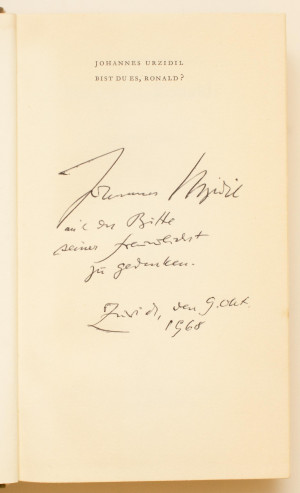 JOHANNES URZIDIL
BIST DU ES, RONALD?
Johannes Urzidil
mit der Bitte
seiner freundlichst
zu gedenken.
Zürich, den 9. Okt.
1968